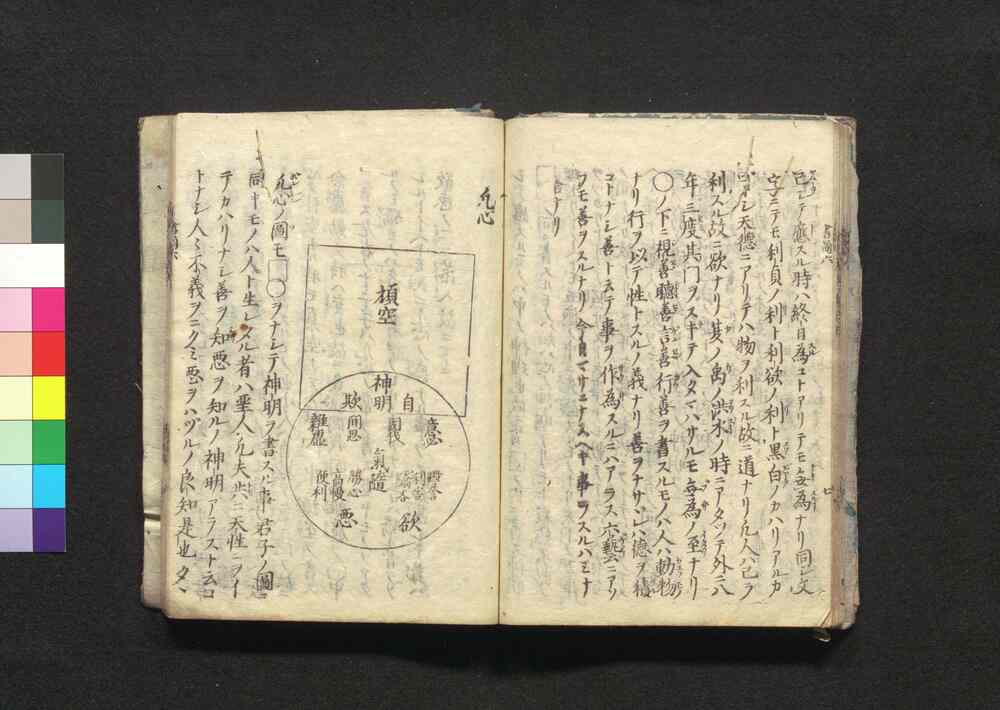 己シテ應スル時ハ終日為コトアリテモ無為ナリ同シ文
字ニテモ利貞ノ利ト利欲ノ利ト黒白ノカハリアルカ
コトシ天徳ニアリテハ物ヲ利スル故ニ道ナリ凡人ハ己ヲ
利スル故ニ欲ナリ其ノ禹洪水ノ時ニアタツテ外ニ八
年三度其門ヲスキテ入タマハサルモ無為ノ至ナリ
○ノ下ニ視善聽善言善行善ヲ書スルモノハ人ハ動物
ナリ行ヲ以テ性トスルノ義ナリ善ヲナサヽレハ徳ヲ積
コトナシ善ト云テ一事ヲ作為スルニハアラス六藝ニアソ
フモ善ヲスルナリ今日マサニナスヘキ事ヲスルハミナ
善ナリ
凡心
頑空
神明
自
欺
意念
間思
雜慮
氣隨
利害
毀譽
勝心
高慢
便利
欲
惡
凡心ノ圖モ□○ヲナシテ神明ヲ書スル事君子ノ圖ニ
同キモノハ人ト生レタル者ハ聖人凡夫共ニ天性ニヲイ
テカハリナシ善ヲ知惡ヲ知ルノ神明アラスト云コ
トナシ人々不義ヲニクミ惡ヲハツルノ良知是也タヽ